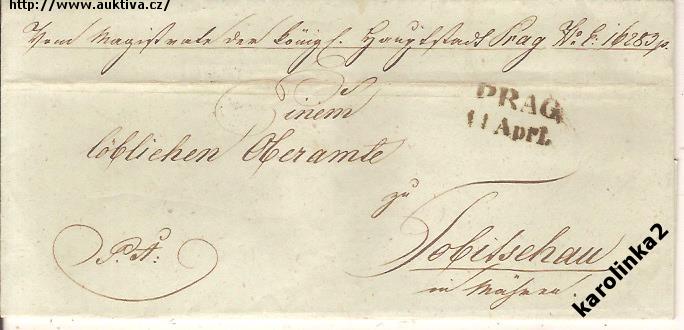 http://www.auktiva.cz/
Vom Magistrate der königl. Hauptstadt Prag No. E: 16283p.
Einem
löblichen Oberamte
PRAG
11 Aprl.
zu
Tobitschau
in Mähren.
P. A:
karolinka2